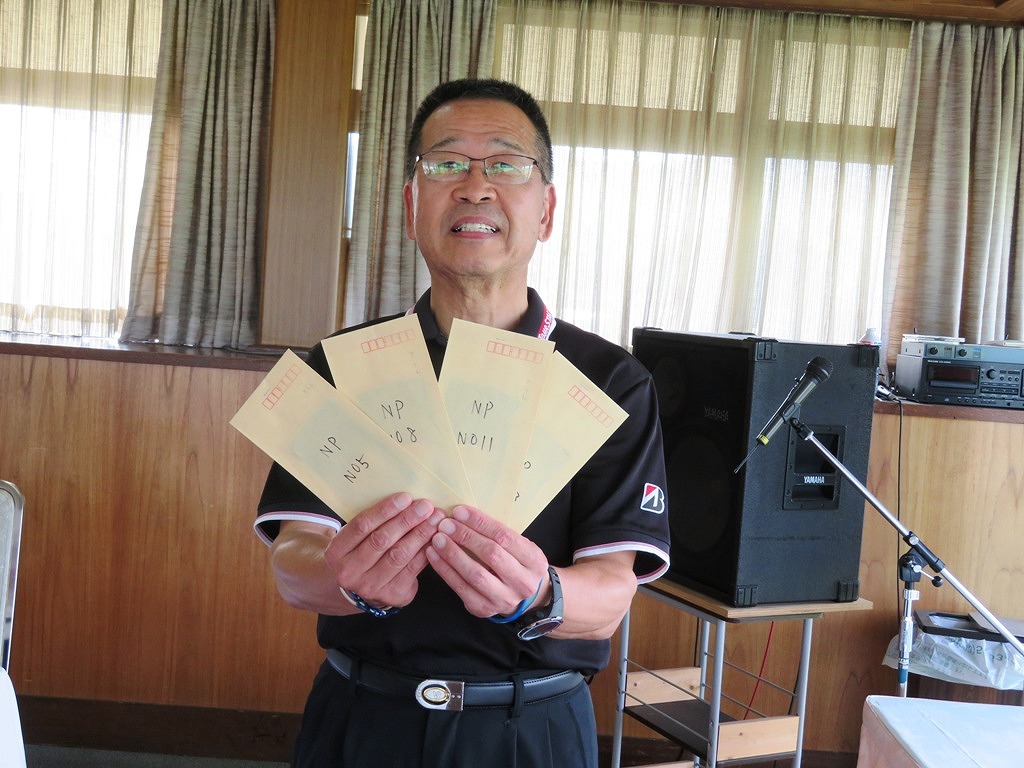 NP
NO5
NP
NO8
NP
NO11
YAMAHA
YAMAHA
B